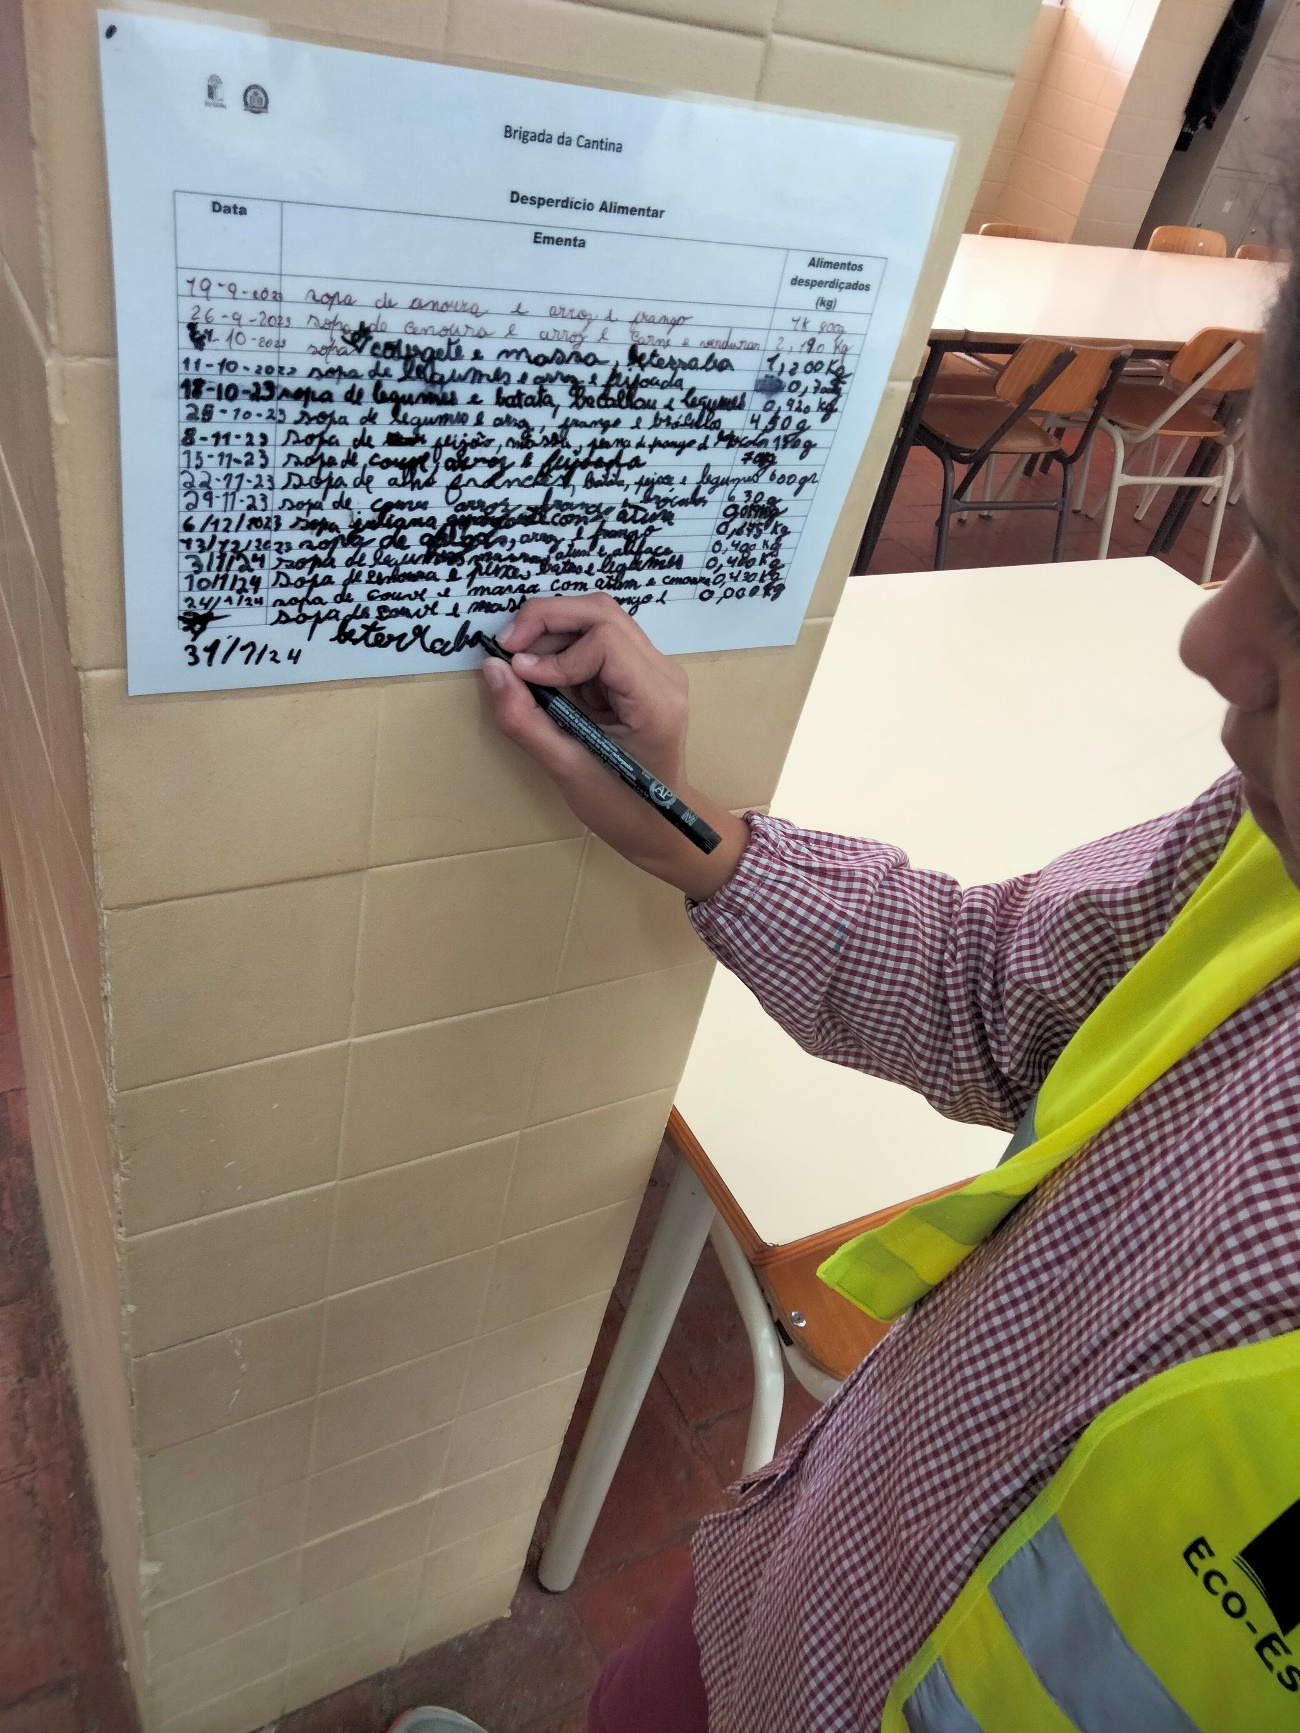 Brigada da Cantina
Desperdício Alimentar
Data Ementa Alimentos desperdiçados (kg)
19-9-2023 sopa de cenoura e arroz e frango 1k 900g
26-9-2023 sopa de cenoura e arroz e carne e 2,190 kg
-10-2023 sopa courgete e massa, beterraba 1,200Kg
11-10-2023 sopa de legumes e arroz e feijoada 0,
18-10-23 sopa de legumes e batata, bacalhau e legumes 0,920 kg
25-10-23 sopa de legumes e arroz, frango e brócolos 4,50g
8-11-23 sopa de feijão, massa, perna de frango
15-11-23 sopa de couve, arroz e feijoada 70g
22-11-23 sopa de alho francês, batata, peixe e legumes 600gr
29-11-23 sopa de couve arroz frango brócolos 630g
6/12/2023 sopa juliana com atum
13/12/2023 sopa de arroz e frango 0,875 Kg
3/1/24 sopa de legumes massa, atum e alface 0,400 Kg
10/1/24 sopa de cenoura e peixe, batata e legumes 0,460Kg
24/1/24 sopa de couve e massa com atum e cenoura 0,430Kg
sopa de couve e massa e 0,000Kg
beterraba
31/1/24
AP
ECO-ES